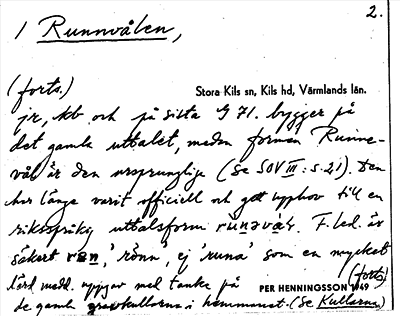 2.
1 Runnvålen,
(forts.) Stora Kils sn, Kils hd, Värmlands län.
jr, kb och på sista G 71. bygger på
det gamla uttalet, medan formen Runne-
vål är den ursprungliga (se SOV III: s. 21). Den
har länge varit officiell och gett upphov till en
riksspråklig uttalsform. F. led. är
säkert 'rönn', ej 'runa' som en mycket
lärd medd. uppgav med tanke på (forts.)
PER HENNINGSSON 1949
de gamla gravkullarna i hemmanet. (Se Kullarna)